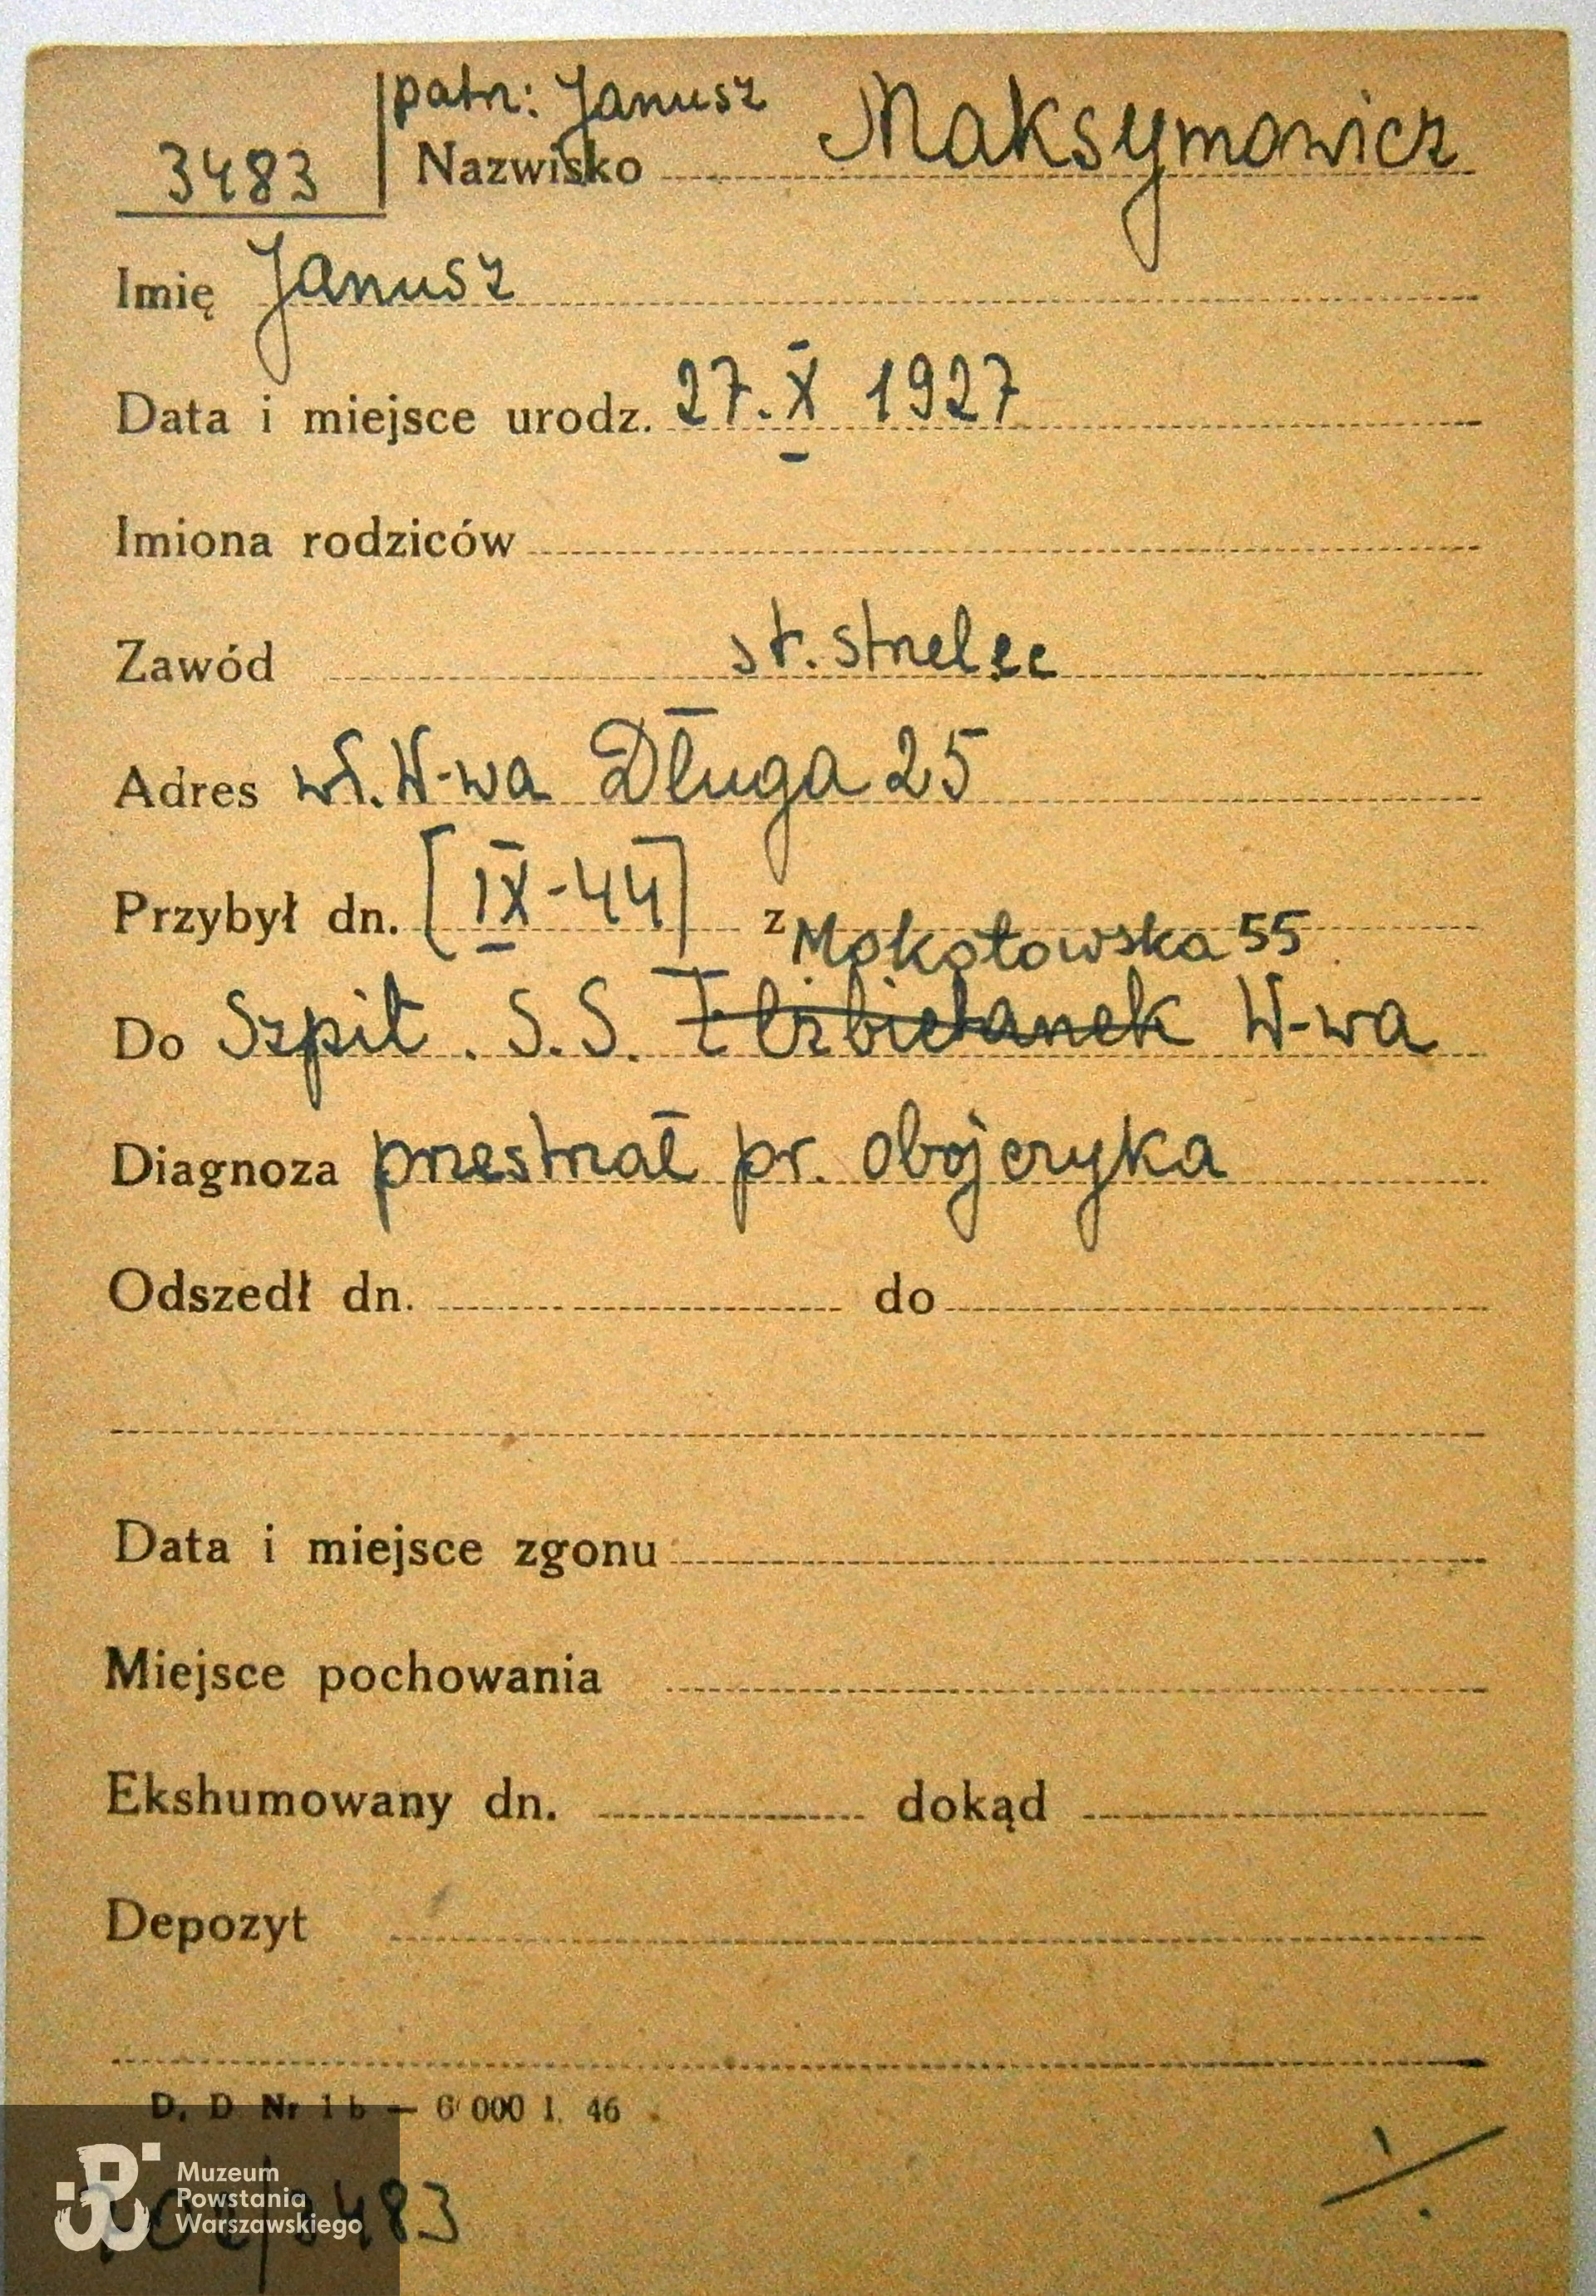 patrz: Janusz
3483 Nazwisko Maksymowicz
Imię Janusz
Data i miejsce urodz. 27. X 1927
Imiona rodziców
Zawód st. strzelec
Adres wł. W-wa Długa 25
Przybył dn. [IX-44] z Mokotowska 55
Do Szpit. S.S. Elżbietanek W-wa
Diagnoza przestrzał pr. obojczyka
Odszedł dn. do
Data i miejsce zgonu
Miejsce pochowania
Ekshumowany dn. dokąd
Depozyt
D. D Nr 1 b — 6 000 I. 46
Muzeum
Powstania
Warszawskiego